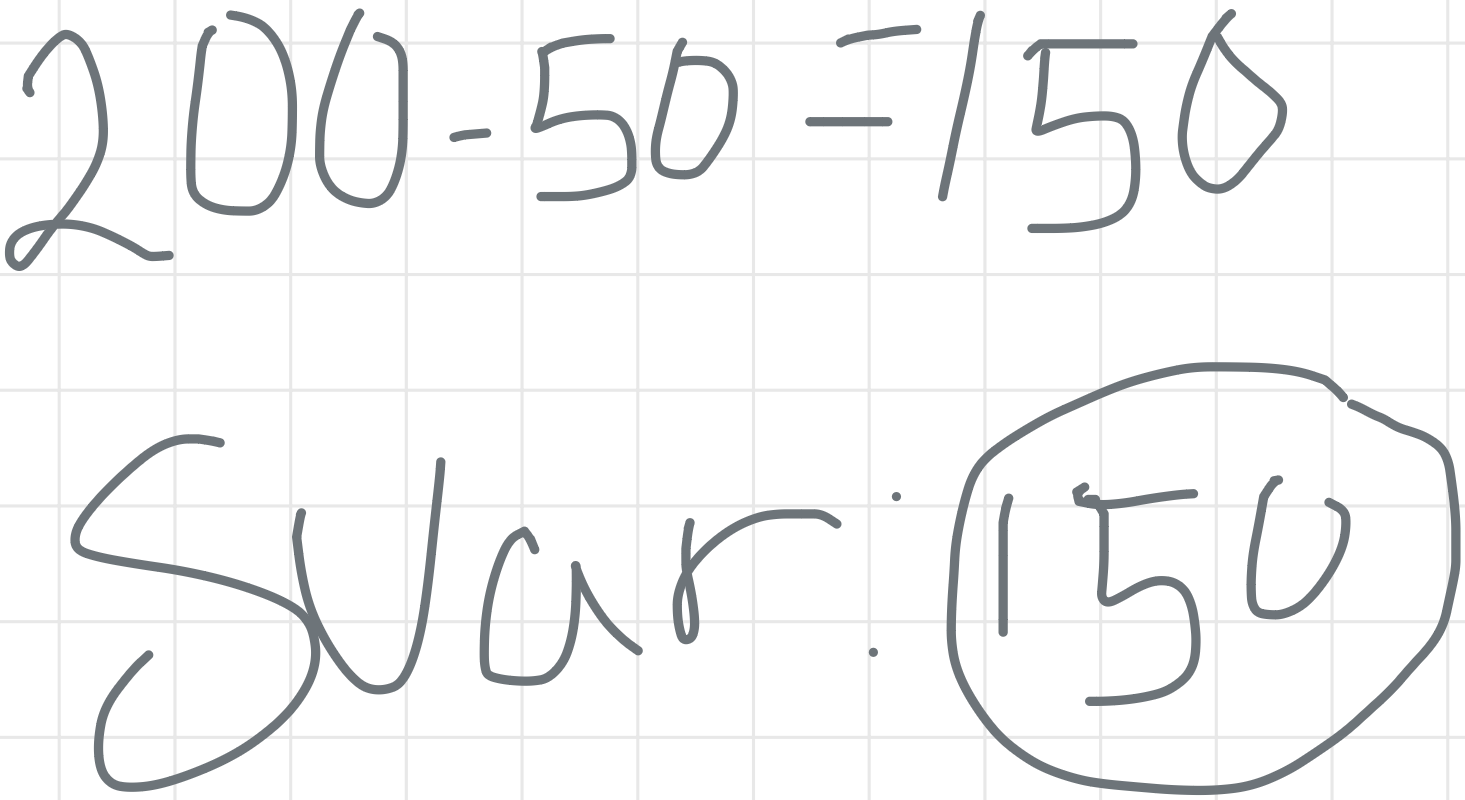 200-50=150
Svar: 150